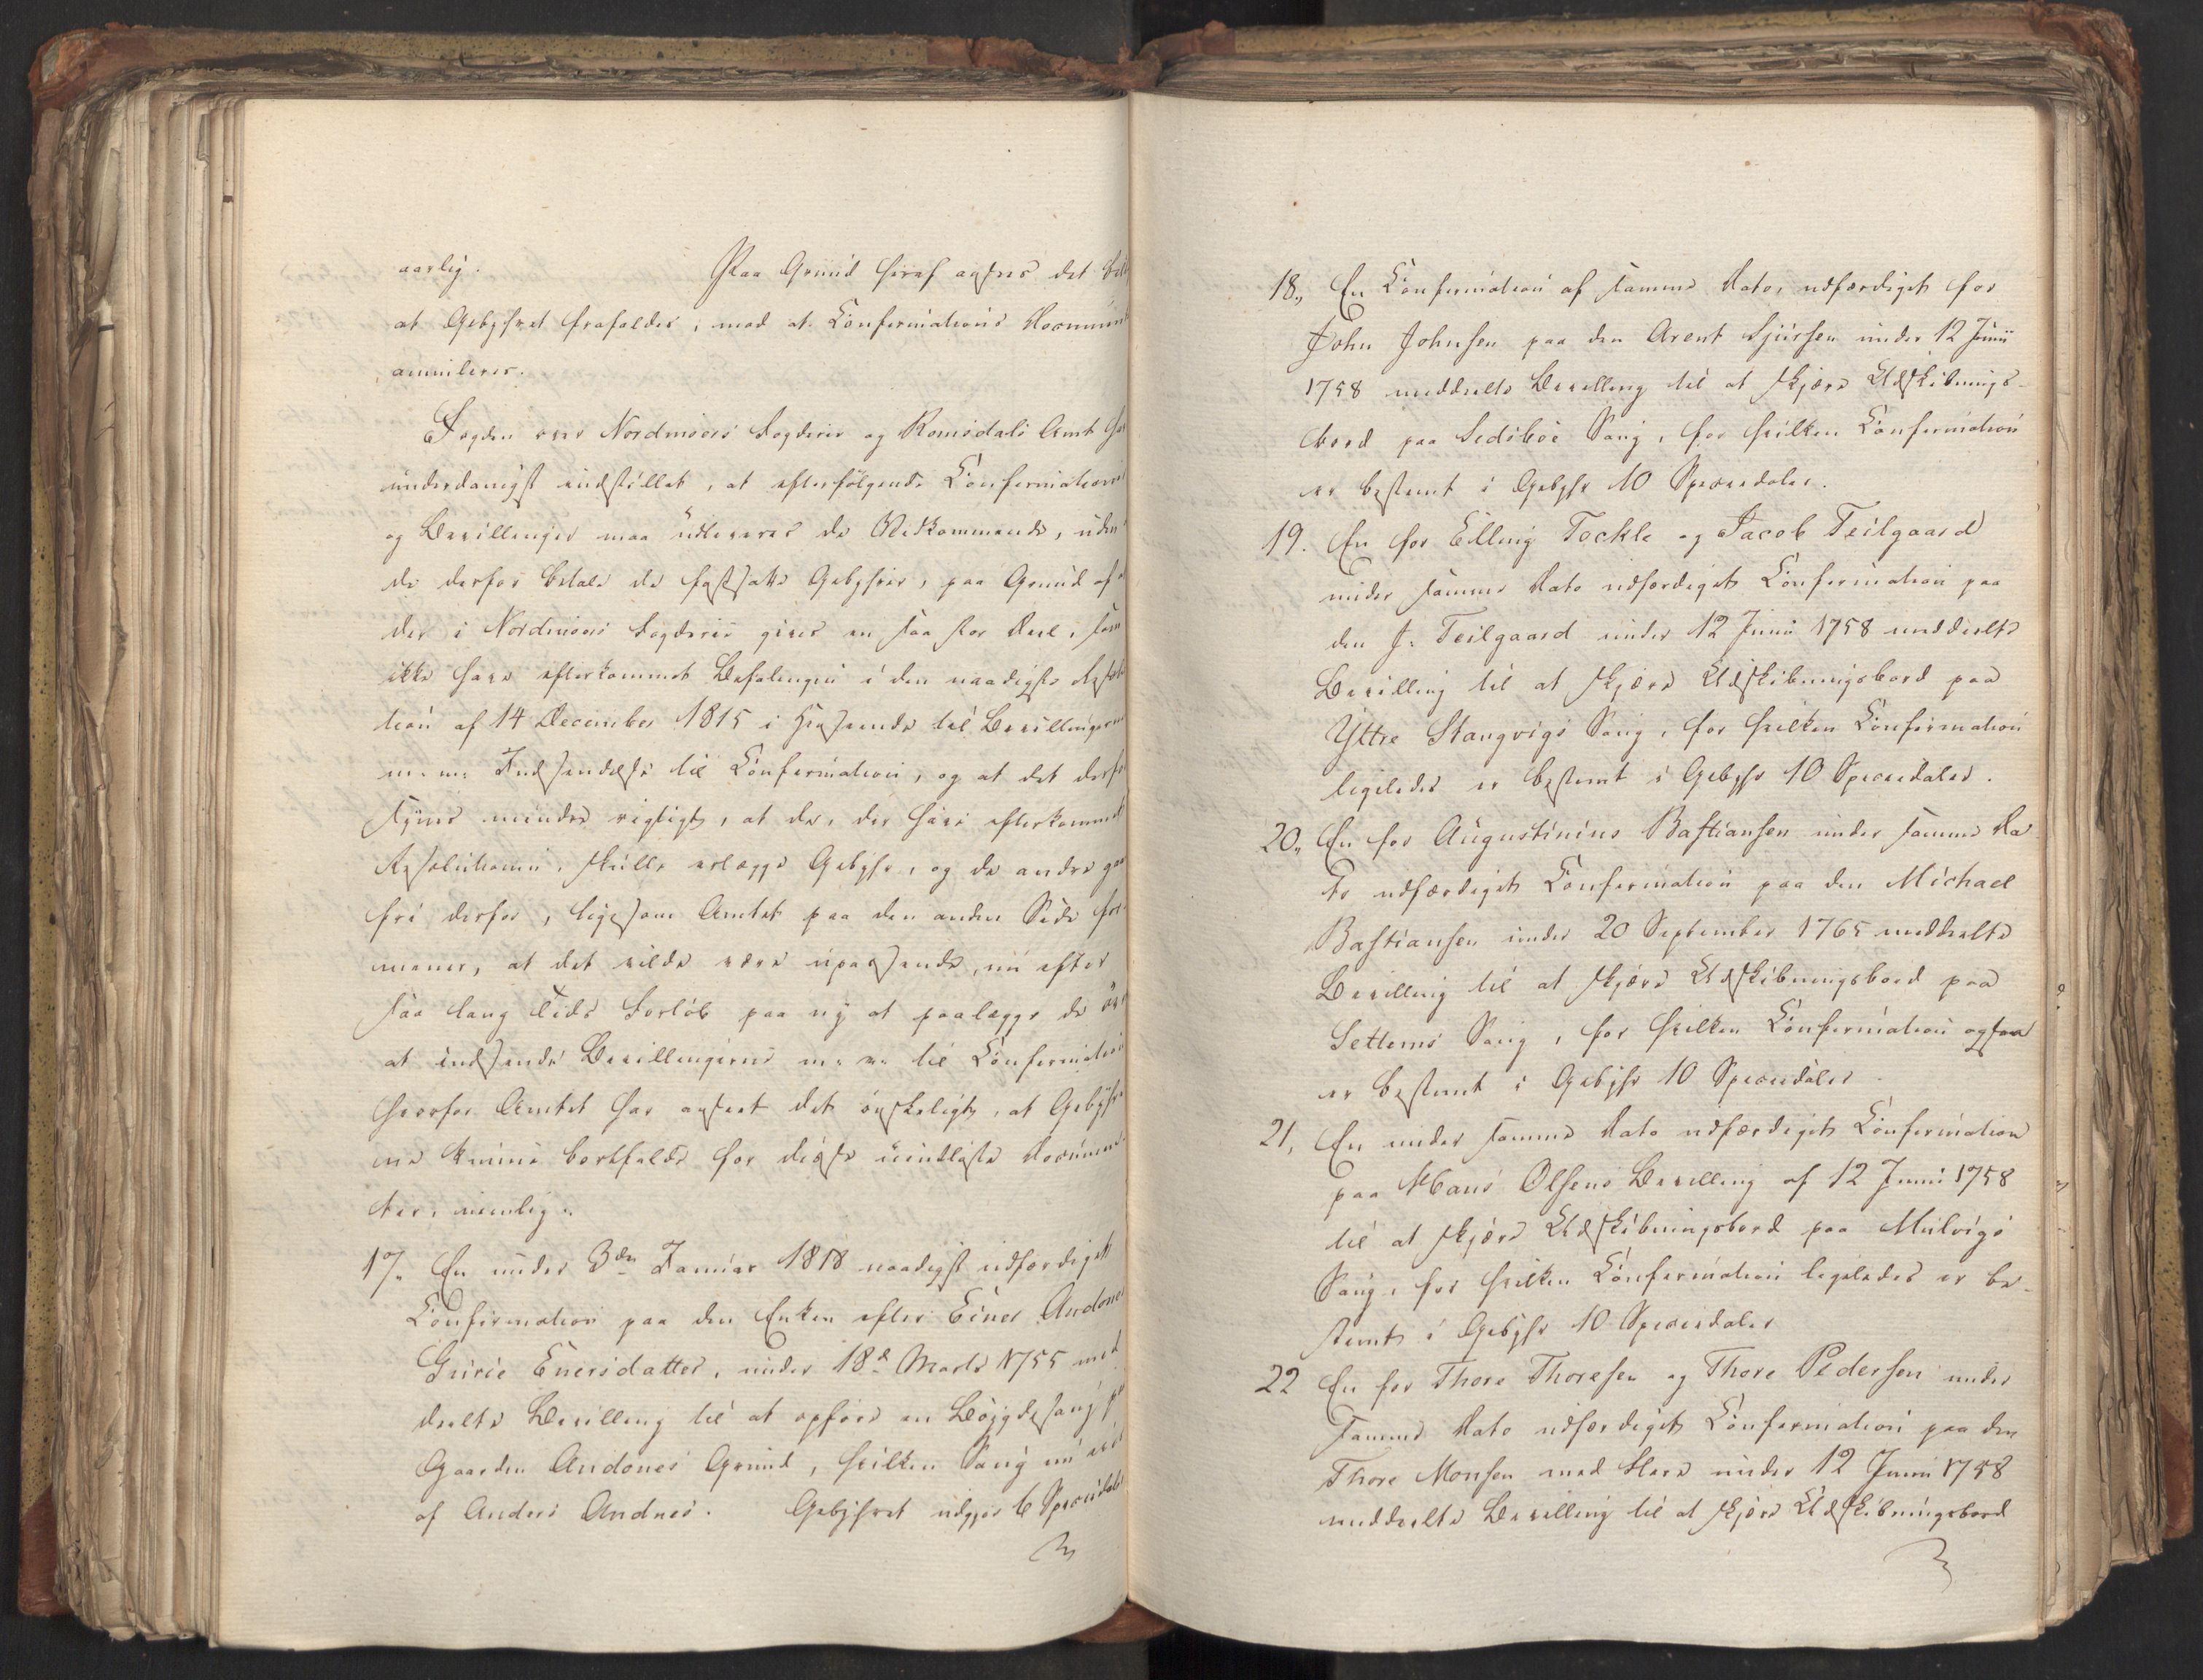 aarlig. Paa Grund heraf ansees det
at Gebyhret frafaldes, mod at Confirmations Document
annuleres.
Fogden over Nordmørs Fogderie og Romsdals Amt har
underdanigst indstillet, at efterfølgende Confirmationer
og Bevillinger maa udleveres de Vedkommende, uden
de derfor betale de fastsatte Gebyhrer, paa Grund af
der i Nordmørs Fogderie gives en saa stor Deel, som
ikke have efterkommet Befalingen i den naadigste Resolu
tion af 14 December 1815 i Henseende til Bevillingernes
m. m. Indsendelse til Confirmation, og at det derfor
synes mindre rigtigt, at de, der have efterkommet
Resolutionen, skulle erlægge Gebyhr, og de andre gaae
fri derfor, ligesom Amtet paa den anden Side for
mener, at det vilde være upassende, nu efter
saa lang Tids Forløb paa ny at paalægge de
at indsende Bevillingerne m. m. til Confirmation
hvorfor Amtet har anseet det ønskeligt, at Gebyhre
ne kunne bortfalde for disse uindløste Documen
ter, nemlig:
17. En under 3den Januar 1818 naadigst udfærdiget
Confirmation paa den Enken efter Einer Andones
Gurie Enersdatter, under 18de Marts 1755 med
deelte Bevilling til at opføre en Bøjgdesaug paa
Gaarden Andones Grund, hvilken Saug nu
af Anders Andnes. Gebyhret udgjør 6 Speciedaler
18. En Confirmation af samme Dato, udfærdiget for
John Johnsen paa den Arent Sjursen under 12 Junii
1758 meddeelte Bevilling til at skjære Udskibnings-
bord paa Sedsböe Saug, for hvilken Confirmation
er bestemt i Gebyhr 10 Speciedaler.
19. En for Elling Teckle og Jacob Teilgaard
under samme Dato udfærdiget Confirmation paa
den J. Teilgaard under 12 Junii 1758 meddeelte
Bevilling til at skjære Udskibningsbord paa
Yttre Stangvigs Saug, for hvilken Confirmation
ligeledes er bestemt i Gebyhr 10 Speciedaler.
20. En for Augustinius Bastiansen under samme Da
to udfærdiget Confirmation paa den Michael
Bastiansen under 20 September 1765 meddeelte
Bevilling til at skjære Udskibningsbord paa
Settems Saug, for hvilken Confirmation ogsaa
er bestemt i Gebyhr 10 Speciedaler.
21. En under samme Dato udfærdiget Confirmation
paa Hans Olsens Bevilling af 12 Junii 1758
til at skjære Udskibningsbord paa Mulvigs
Saug, for hvilken Confirmation ligeledes er be-
stemt i Gebyhr 10 Speciedaler
22 En for Thore Thoresen og Thore Pedersen under
samme Dato udfærdiget Confirmation paa den
Thore Monsen med Flere under 12 Junii 1758
meddeelte Bevilling til at skjære Udskibningsbord